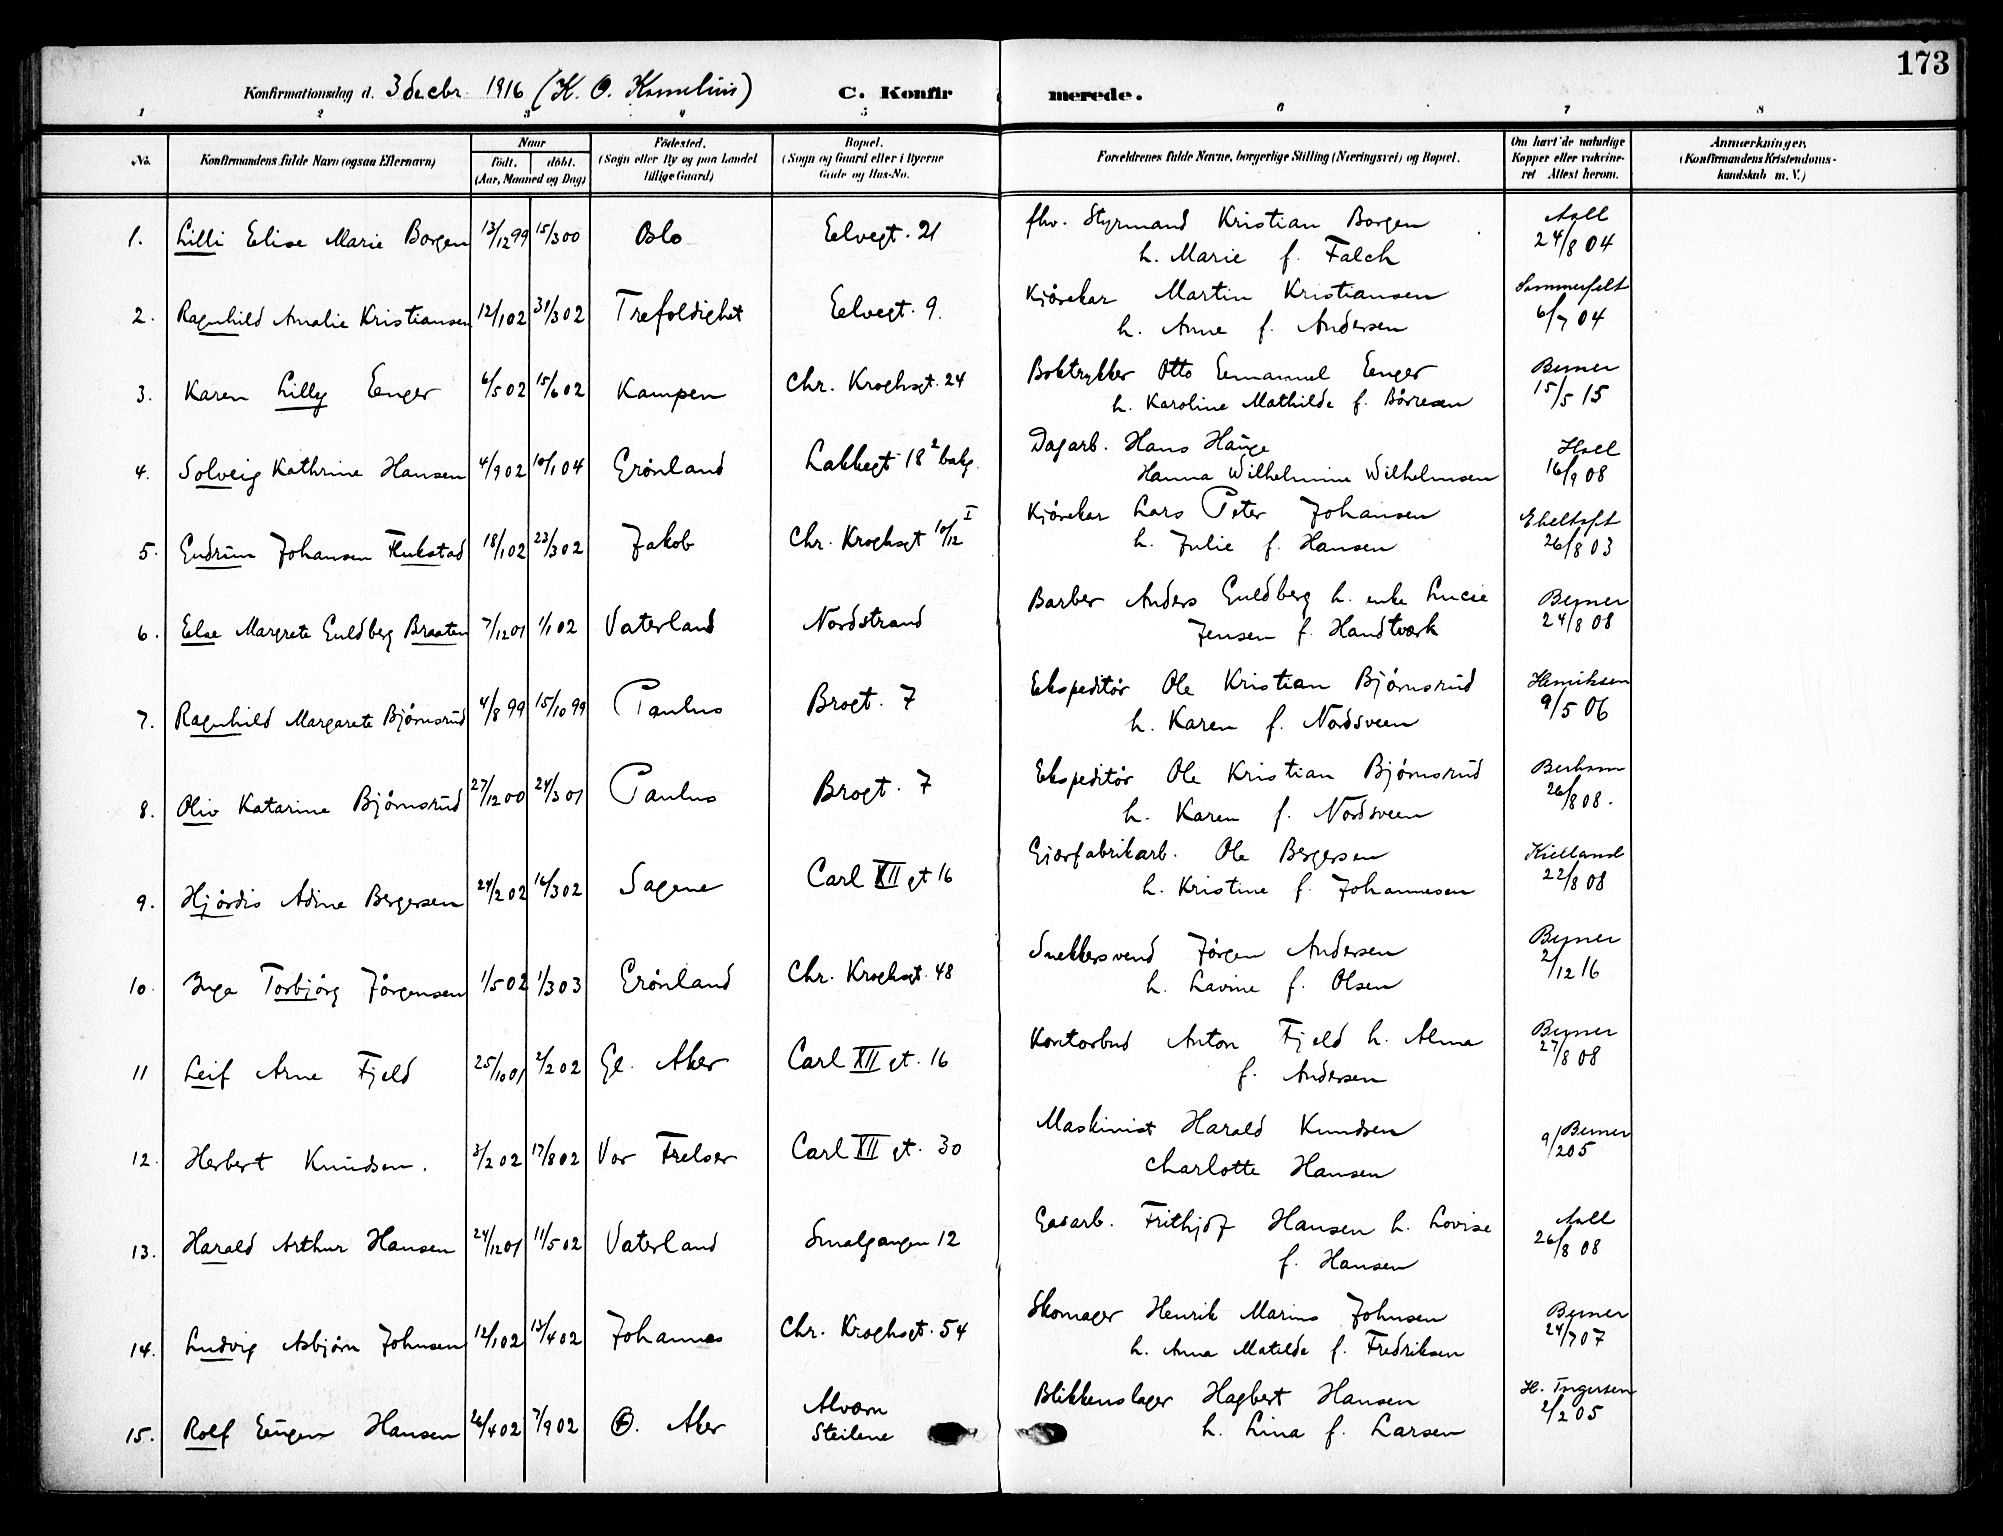 173
Konfirmationsdag d. 3 decbr. 1916 (K. O. Kornelius) C. Konfirmerede.
1 2 3 4 5 6 7 8
No. Konfirmandens fulde Navn (ogsaa Efternavn) Naar født. døbt. (Aar, Maaned og Dag) Fødested. (Sogn eller By og paa Landet tillige Gaard) Bopæl. (Sogn og Gaard eller i Byerne Gade og Hus-No. Forældrenes fulde Navne, borgerlige Stilling (Næringsvei) og Bopæl. Om havt de naturlige Kopper eller vaccineret Attest herom. Anmærkninger, (Konfirmandens Kristendomskundskab m. V.)
1. Lilli Elise Marie Borgen 13/12 99 15/3 00 Oslo Gelvegt. 21 fhv. Styrmand Kristian Borgen Aall
h. Marie f. Falch 24/8 04
2. Ragnhild Amalie Kristiansen 12/1 02 31/3 02 Trefoldighet Gelvegt. 9. Kjørekar Martin Kristiansen Sommerfelt
h. Anne f. Andersen 6/7 04
3. Karen Lilly Enger 6/5 02 15/6 02 Kampen Chr. Kroghsgt. 24 Boktrykker Otto Emanuel Enger Berner
h. Karoline Mathilde f. Børresen 15/5 15
4. Solveig Kathrine Hansen 4/9 02 10/1 04 Grønland Lakkegt 18² bakg. Dagarb. Hans Hauge Hall
Hanna Wilhelmine Wilhelmsen 16/9 08
5. Gudrun Johansen Flukstad 18/1 02 23/3 02 Jakob Chr. Kroghsgt 10/12 I Kjørekar Lars Peter Johansen Eheltoft
h. Julie f. Hansen 26/8 03
6. Else Margrete Guldberg Braaten 7/12 01 1/1 02 Vaterland Nordstrand Barber Anders Guldberg h. enke Lucie Berner
Jensen f. Handtværk 24/8 08
7. Ragnhild Margarete Bjørnsrud 4/8 99 15/10 99 Paulus Brogt. 7 Ekspeditør Ole Kristian Bjørnsrud Henriksen
h. Karen f. Nordsveen 9/5 06
8. Oliv Katarine Bjørnsrud 27/12 00 24/3 01 Paulus Brogt. 7 Ekspeditør Ole Kristian Bjørnsrud
h. Karen f. Nordsveen 26/8 08.
9. Hjørdis Adine Bergersen 24/2 02 16/3 02 Sagene Carl XII gt 16 Gjærfabrikarb. Ole Bergersen Kielland
h. Kristine f. Johannesen 22/8 08
10. Inga Torbjørg Jørgensen 1/5 02 1/3 03 Grønland Chr. Kroghsgt. 48 Snekkersvend Jørgen Andersen Berner
h. Lavine f. Olsen 2/12 16
11 Leif Arne Fjeld 25/10 01 2/2 02 Gl. Aker Carl XII gt. 16 Kontorbud Anton Fjeld h. Alma Berner
f. Andersen 27/8 08
12. Herbert Knudsen. 3/2 02 17/8 02 Vor Frelser Carl XII gt. 30 Maskinist Harald Knudsen Berner
Charlotte Hansen 9/2 05
13. Harald Arthur Hansen 24/12 01 11/5 02 Vaterland Smalgangen 12 Gasarb. Frithjof Hansen h. Lovise Aall
f. Hansen 26/8 08
14. Ludvig Asbjørn Johnsen 12/1 02 13/4 02 Johannes Chr. Kroghsgt. 54 Skomager Henrik Marius Johnsen Berner
h. Anna Matilde f. Fredriksen 24/7 07
15. Rolf Eugen Hansen 26/4 02 7/9 02 Ø. Aker Alværn Steilene Blikkenslager Hagbert Hansen H. Ingersen
h. Lina f. Larsen 2/2 05